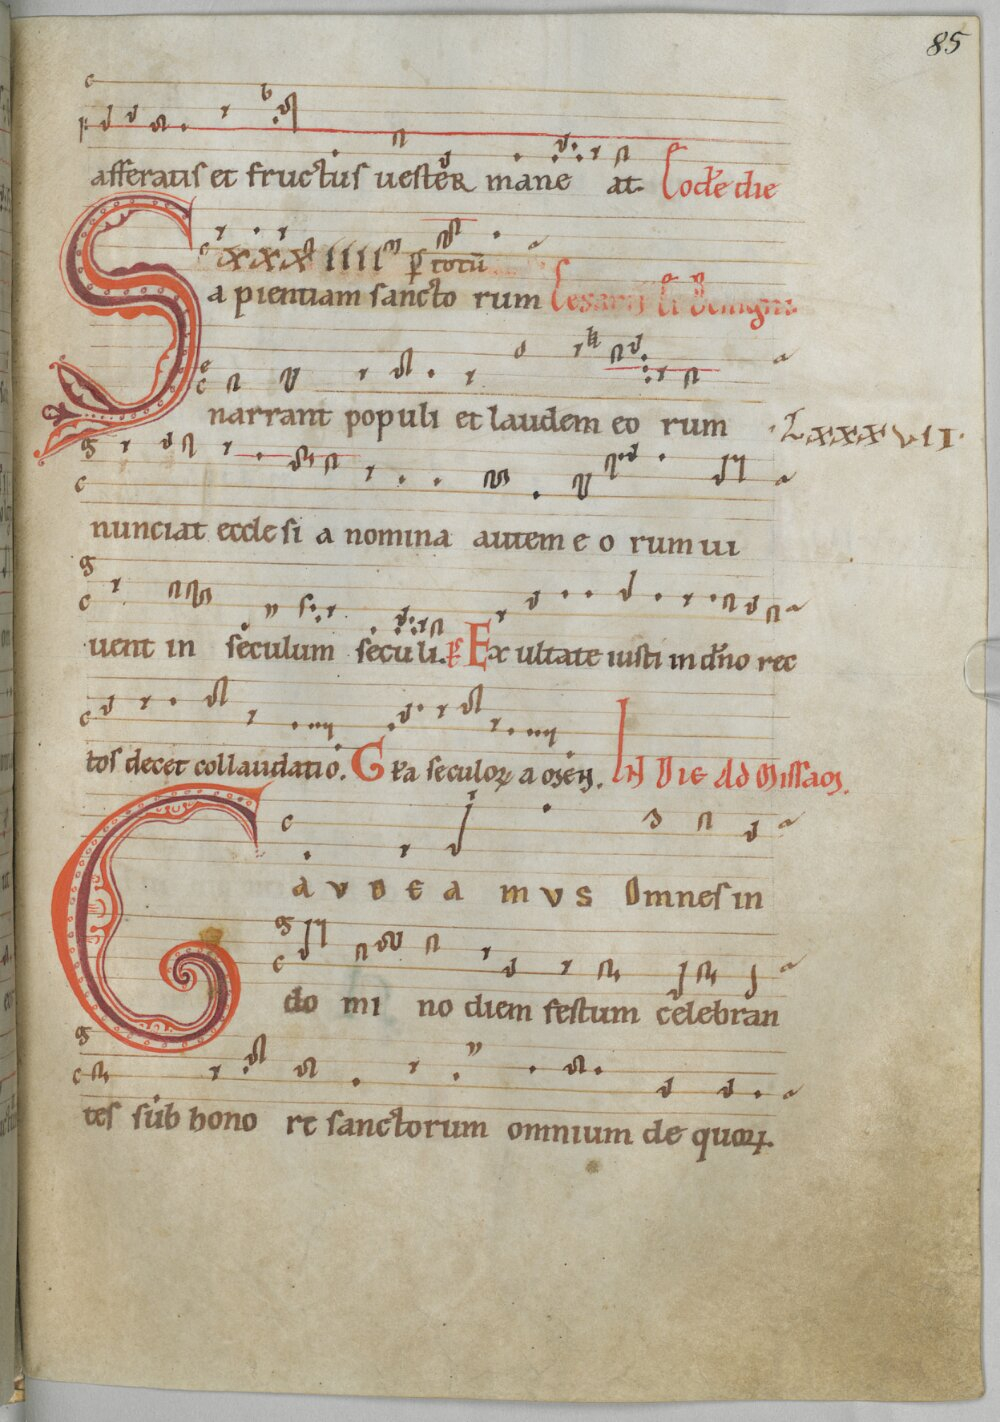 85
afferatis et fructus uester mane at. Eodē die
xxxiiii p totū
Sapientiam sancto rum Cesarii &
narrant populi et laudem eo rum ·Lxxxvii·
nunciat ecclesi a nomina autem e o rum ui
uent in seculum seculi. Ps Exultate iusti in dn̄o rec
tos decet collaudatio. Gl̄a seculoꝝ amen. IN Die Ad Missam.
GAUDEA MUS Omnes in
do mi no diem festum celebran
tes sub hono re sanctorum omnium de quoꝝ.